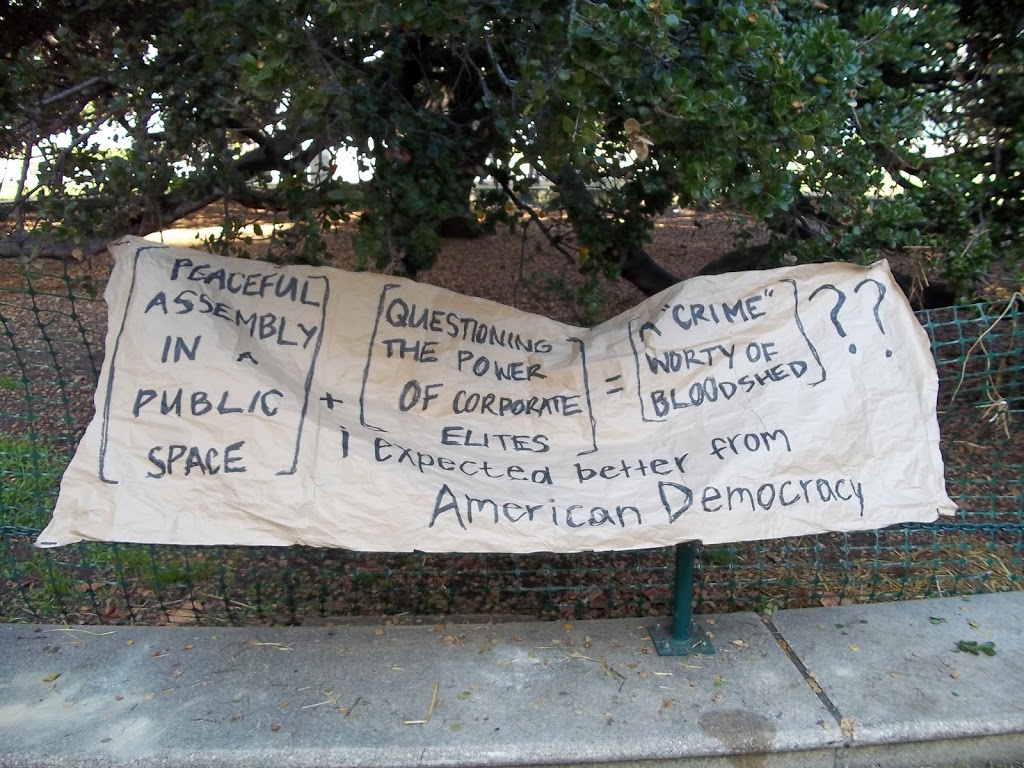 PEACEFUL
ASSEMBLY
IN A
PUBLIC
SPACE
+
QUESTIONING
THE POWER
OF CORPORATE
ELITES
=
A "CRIME"
WORTY OF
BLOODSHED
??
i expected better from
American Democracy